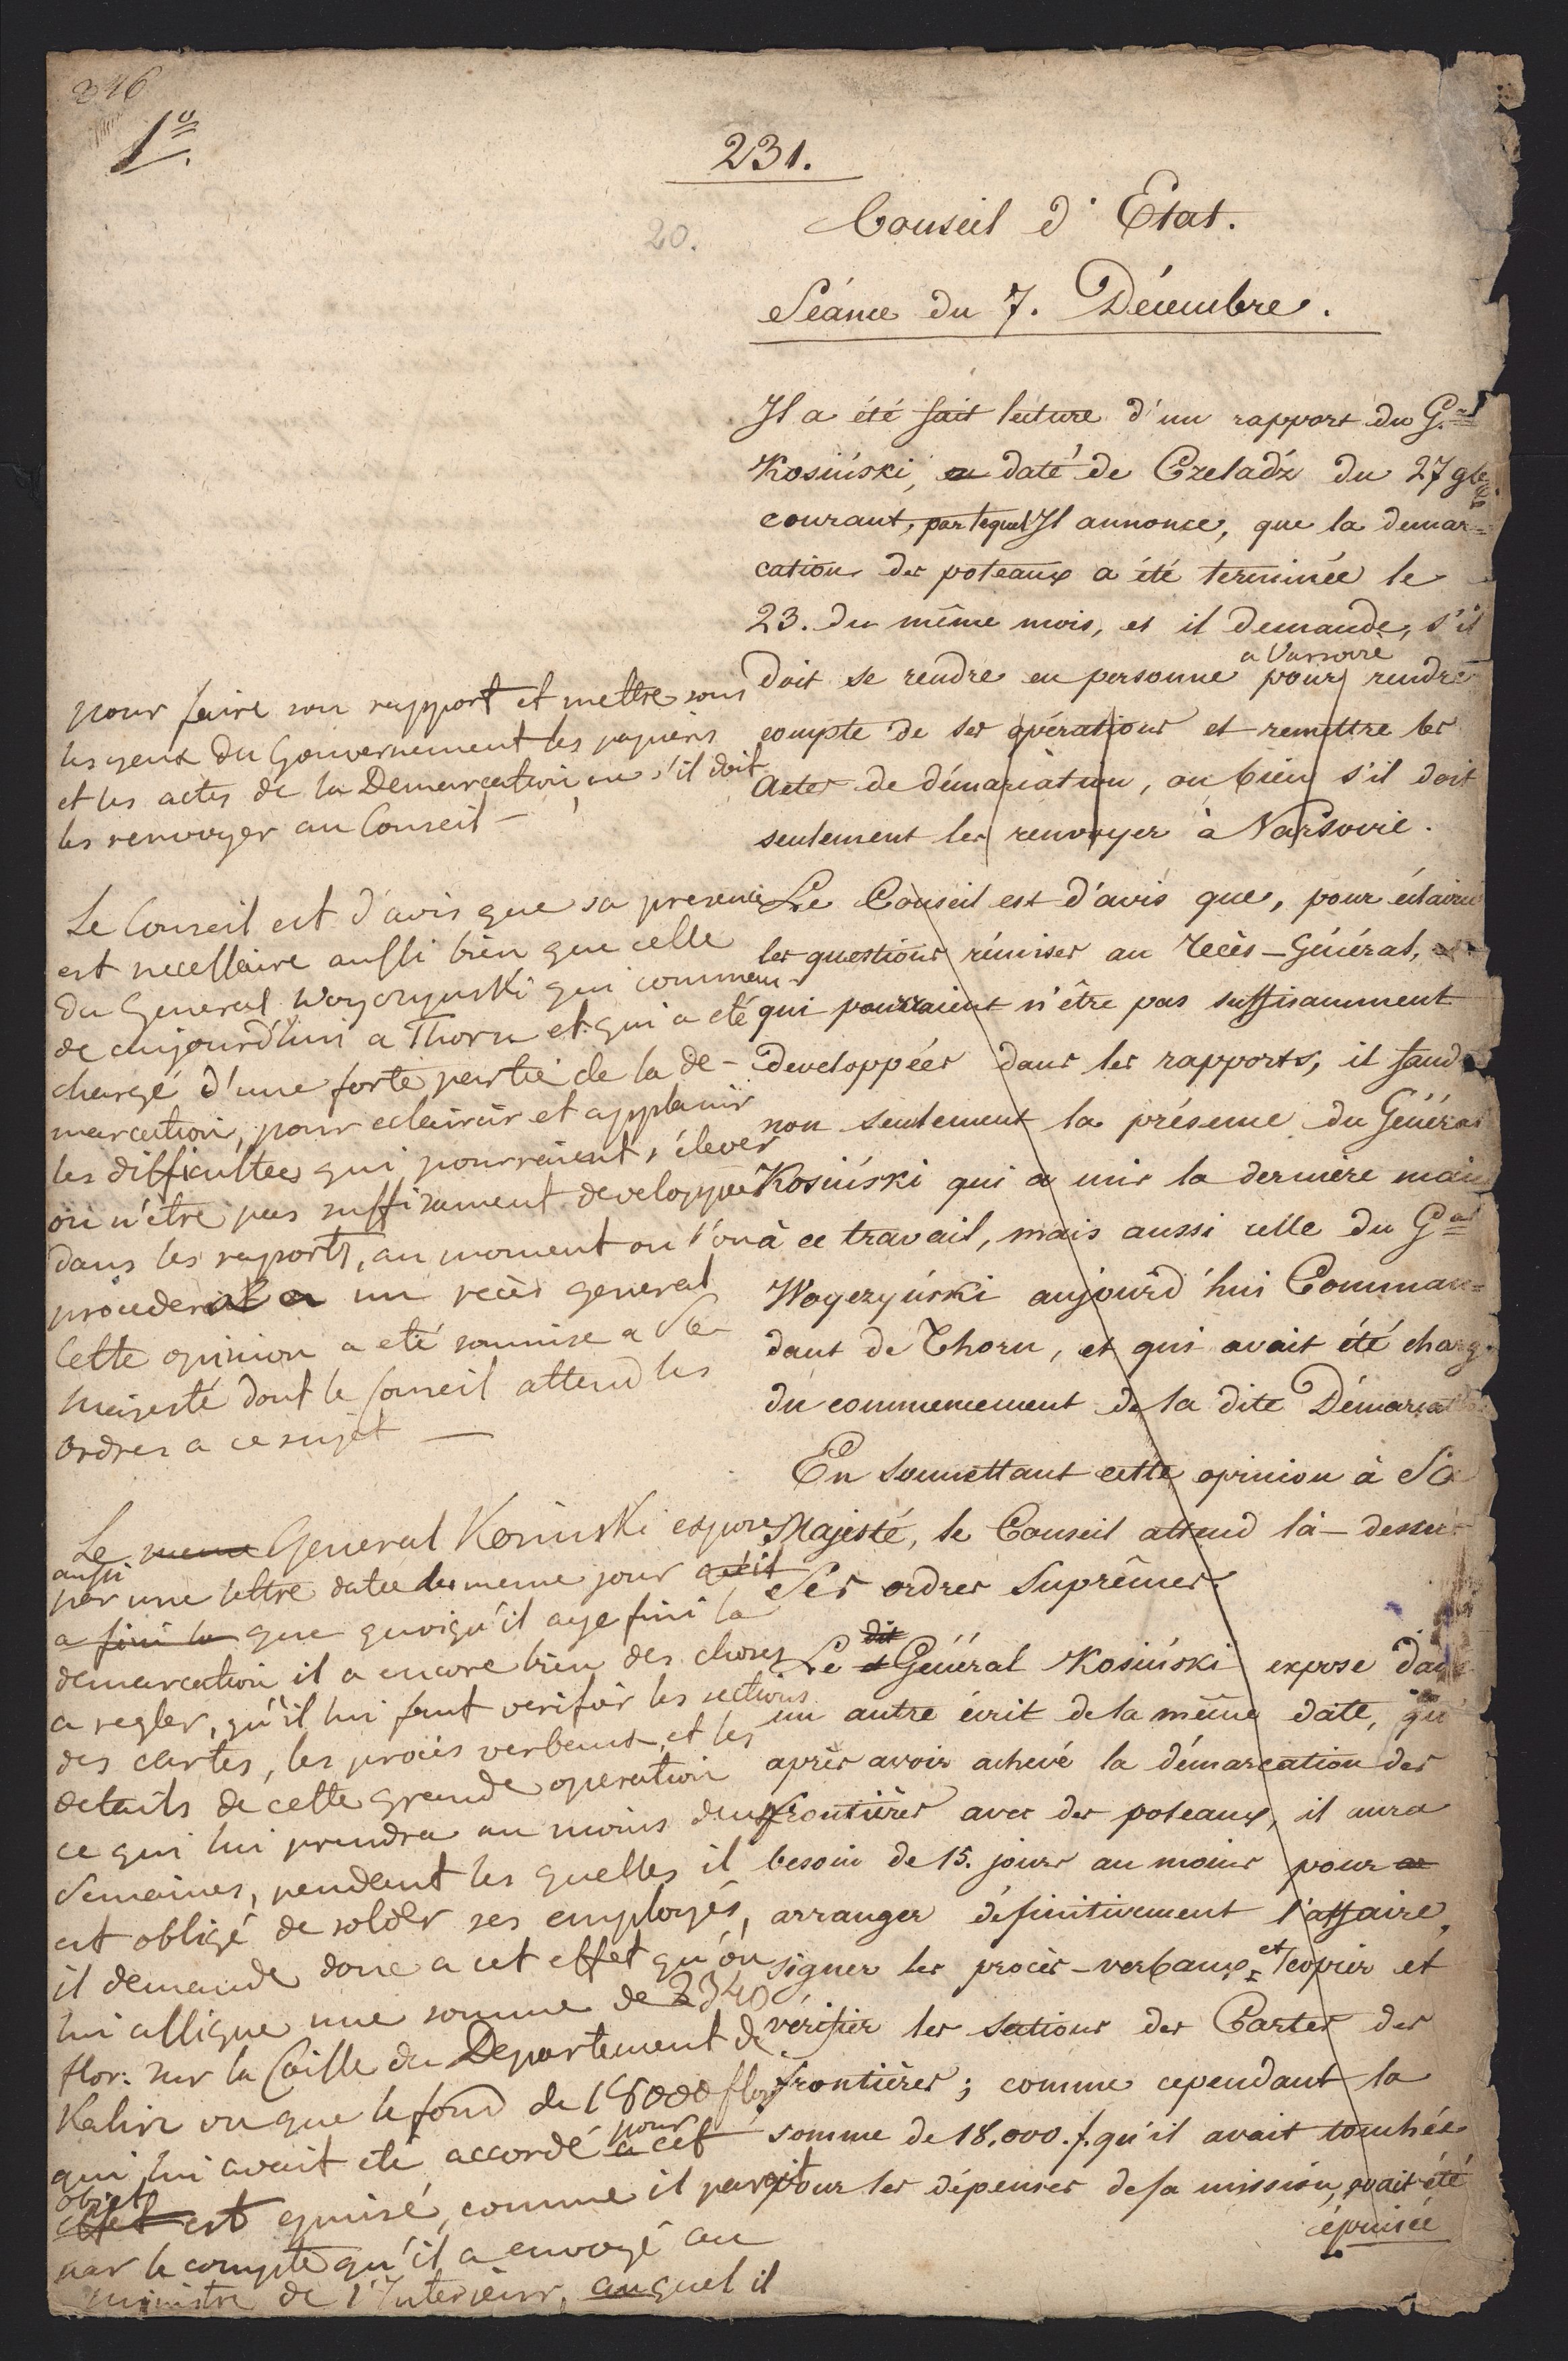 346
1º
231.
20.
Conseil d'Etat.
Séance du 7. Décembre.
Il a été fait lecture d'un rapport du G.al
Kosiński, daté de Czeladź du 27 9bre
courant, par lequel Il annonce, que la demar=
cation des poteaux a été terminée le
23. du même mois, et il demande, s'il
a Varsovie
doit se rendre en personne pour rendre
compte de ses opérations et remettre les
Actes de démarcation, ou bien s'il doit
seulement les renvoyer à Varsovie.
Le Conseil est d'avis que, pour éclaircir
les questions rémises au recès-Général,
qui pourraient n'être pas suffisamment
developpées dans les rapports, il faud
non seulement la présence du Général
Kosiński qui a mis la dernière main
à ce travail, mais aussi celle du Gal
Woyczyński aujourd'hui Comman=
dant de Thorn, et qui avait été charg
du commencement de la dite Démarcat
En soumettant cette opinion à Sa
Majesté, le Conseil attend là-dessus
Ses ordres Suprêmes.
dit
Le Général Kosiński expose dans
un autre écrit de la même date, qu'
après avoir achevé la démarcation des
frontières avec des poteaux, il aura
besoin de 15. jours au moins pour
arranger définitivement l'affaire,
signer les procès-verbaux et copier et
vérifier les sections des Cartes des
frontières; comme cependant la
somme de 18,000. f. qu'il avait touchée
pour les dépenses de sa mission, avait été
épuisée
pour faire son rapport et mettre sous
les yeux du Gouvernement les papiers
et les actes de la Demarcation, ou s'il doit
les renvoyer au Conseil —
Le Conseil est d'avis que sa presence
est necessaire aussi bien que celle
du General Woyczynski qui comman-
de aujourd'hui a Thorn et qui a eté
chargé d'une forte partie de la de-
marcation, pour eclaircir et applanir
les difficultees qui pourraient s'élever
ou n'etre pas suffisament developpée
dans les raports, au moment ou l'on
procedera a un recès general
Cette opinion a eté soumise a Sa
Majesté dont le Conseil attend les
ordres a ce sujet —
Le meme General Kosinski expose
aussi
par une lettre datée du meme jour qu'il
a fini la que quoiqu'il aye fini la
demarcation il a encore bien des choses
a regler, qu'il lui faut verifier les sections
des cartes, les procès verbaux, et les
details de cette grande operation
ce qui lui prendra au moins deux
Semaines, pendant les quelles il
est obligé de solder ses employés,
il demande donc a cet effet qu'on
lui assigne une somme de 2340
flor: sur la Caisse du Departement de
Kalisz vu que le fond de 18000 flor
pour
qui lui avait ete accordé a cet
objet
effet est epuisé, comme il paroit
par le compte qu'il a envoyé au
ministre de l'Interieur, auquel il